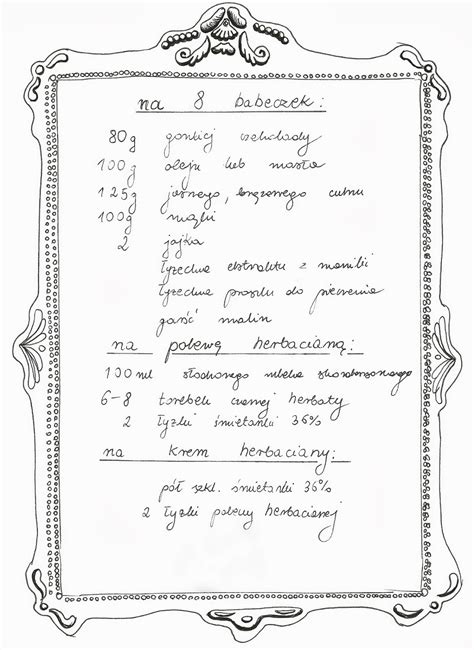 na 8 babeczek:
80g gorzkiej czekolady
100g oleju lub masła
125g jasnego, brązowego cukru
100g mąki
2 jajka
łyżeczka ekstraktu z wanilii
łyżeczka proszku do pieczenia
garść malin
na polewę herbacianą:
100ml słodzonego mleka skondensowanego
6-8 torebek czarnej herbaty
2 łyżki śmietanki 36%
na krem herbaciany:
pół szkl. śmietanki 36%
2 łyżki polewy herbacianej